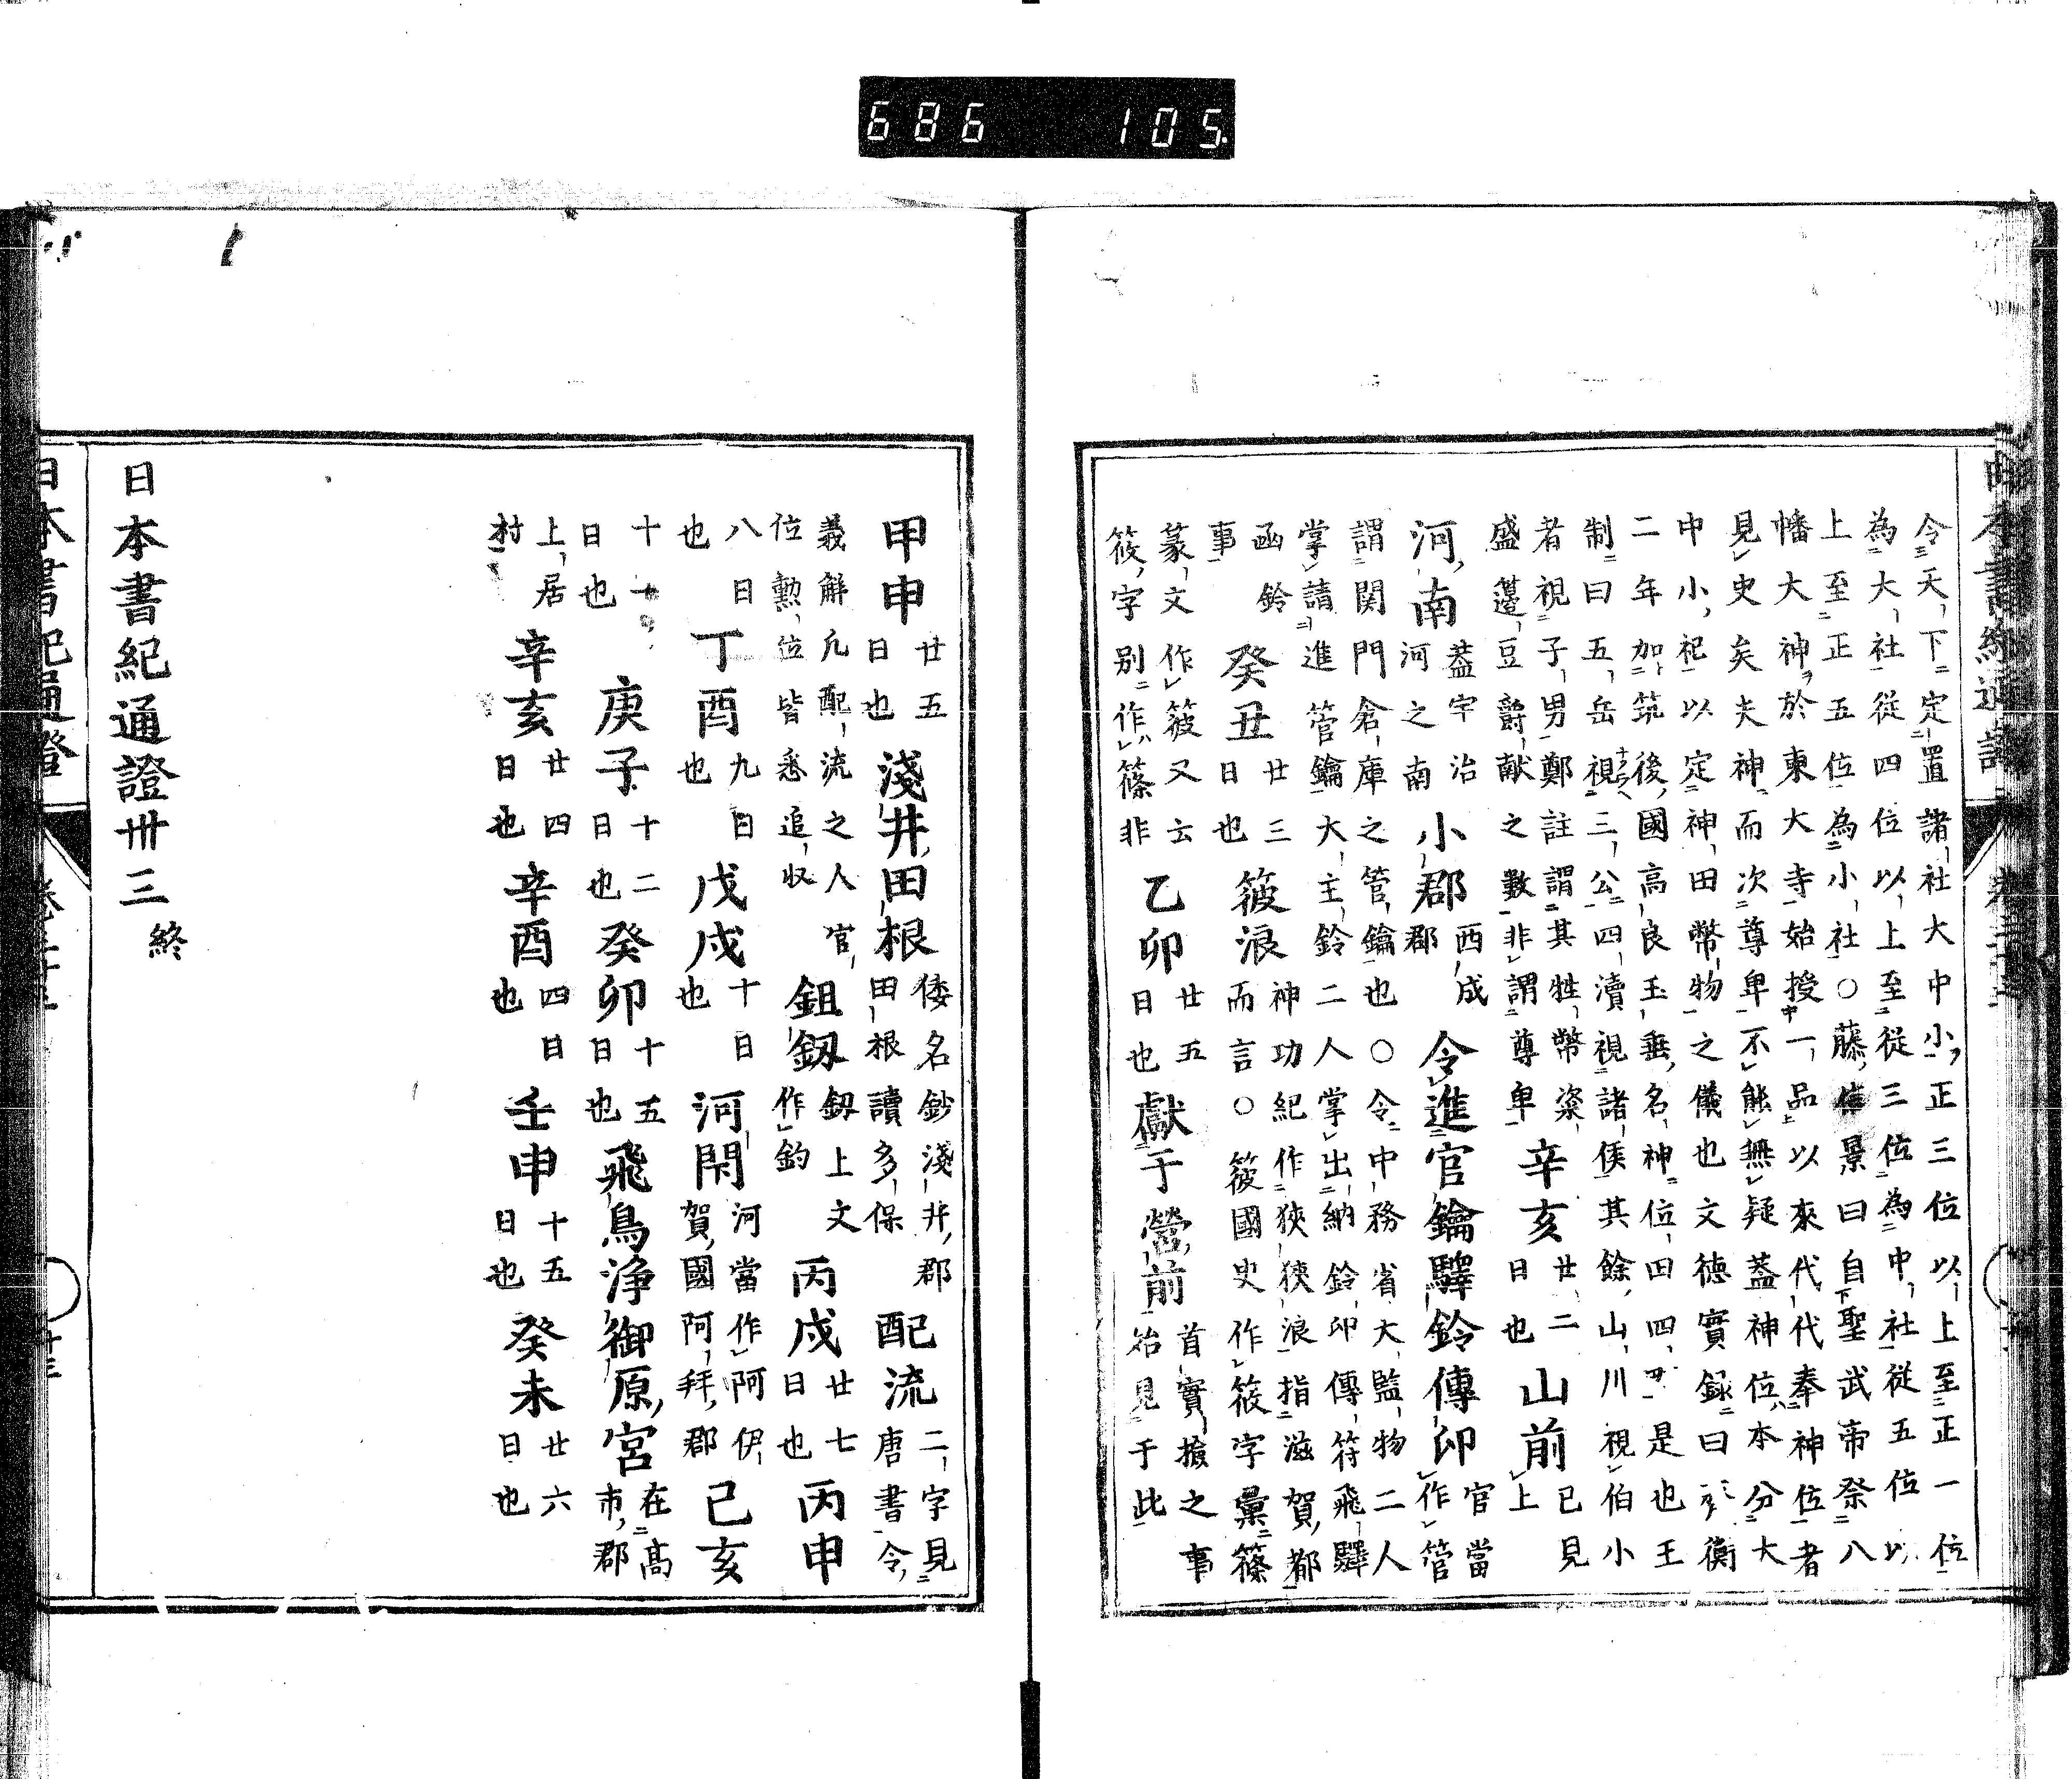 令天下定置諸社大中小正三位以上至正一位
為大社従四位以上至従三位為中社従五位以
上至正五位為小社○藤信景曰自聖武帝祭八
幡大神於東大寺始授一品以來代代奉神位者
見史矣夫神而次尊卑不能無疑蓋神位本分大
中小祀以定神田幣物之儀也文徳實録曰云云衡
二年加筑後國高良玉垂名神位田四町是也王
制曰五岳視三公四瀆視諸侯其餘山川視伯小
者視子男鄭註謂其牲幣粢盛籩豆爵獻之數非謂尊卑 辛亥 廿二日也 山前 已見上
河南 蓋宇治河之南 小郡 西成郡 令進官鑰驛鈴傳印 官當作管
謂関門倉庫之管鑰也○令中務省大監物二人
掌請進管鑰大主鈴二人掌出納鈴印傳符飛驛
函鈴事 癸丑 廿三日也 筱浪 神功紀作狹狹浪指滋賀郡而言○筱國史作筱字彙篠
篆文作筱又云筱字別作篠非 乙卯 廿五日也 獻于營前 首實撿之事始見于此
甲申 廿五日也 淺井田根 倭名鈔淺井郡田根讀多保 配流 二字見唐書令
義解凡配流之人官位勲位皆悉追収 鉏釼 釼上文作釣 丙戌 廿七日也 丙申
八日也 丁酉 九日也 戊戌 十日也 河閇 河當作阿伊賀國阿拜郡 己亥
十一日也 庚子 十二日也 癸卯 十五日也 飛鳥浄御原宮 在高市郡
上居村 辛亥 廿四日也 辛酉 四日也 壬申 十五日也 癸未 廿六日也
日本書紀通證卅三 終
日本書紀通證